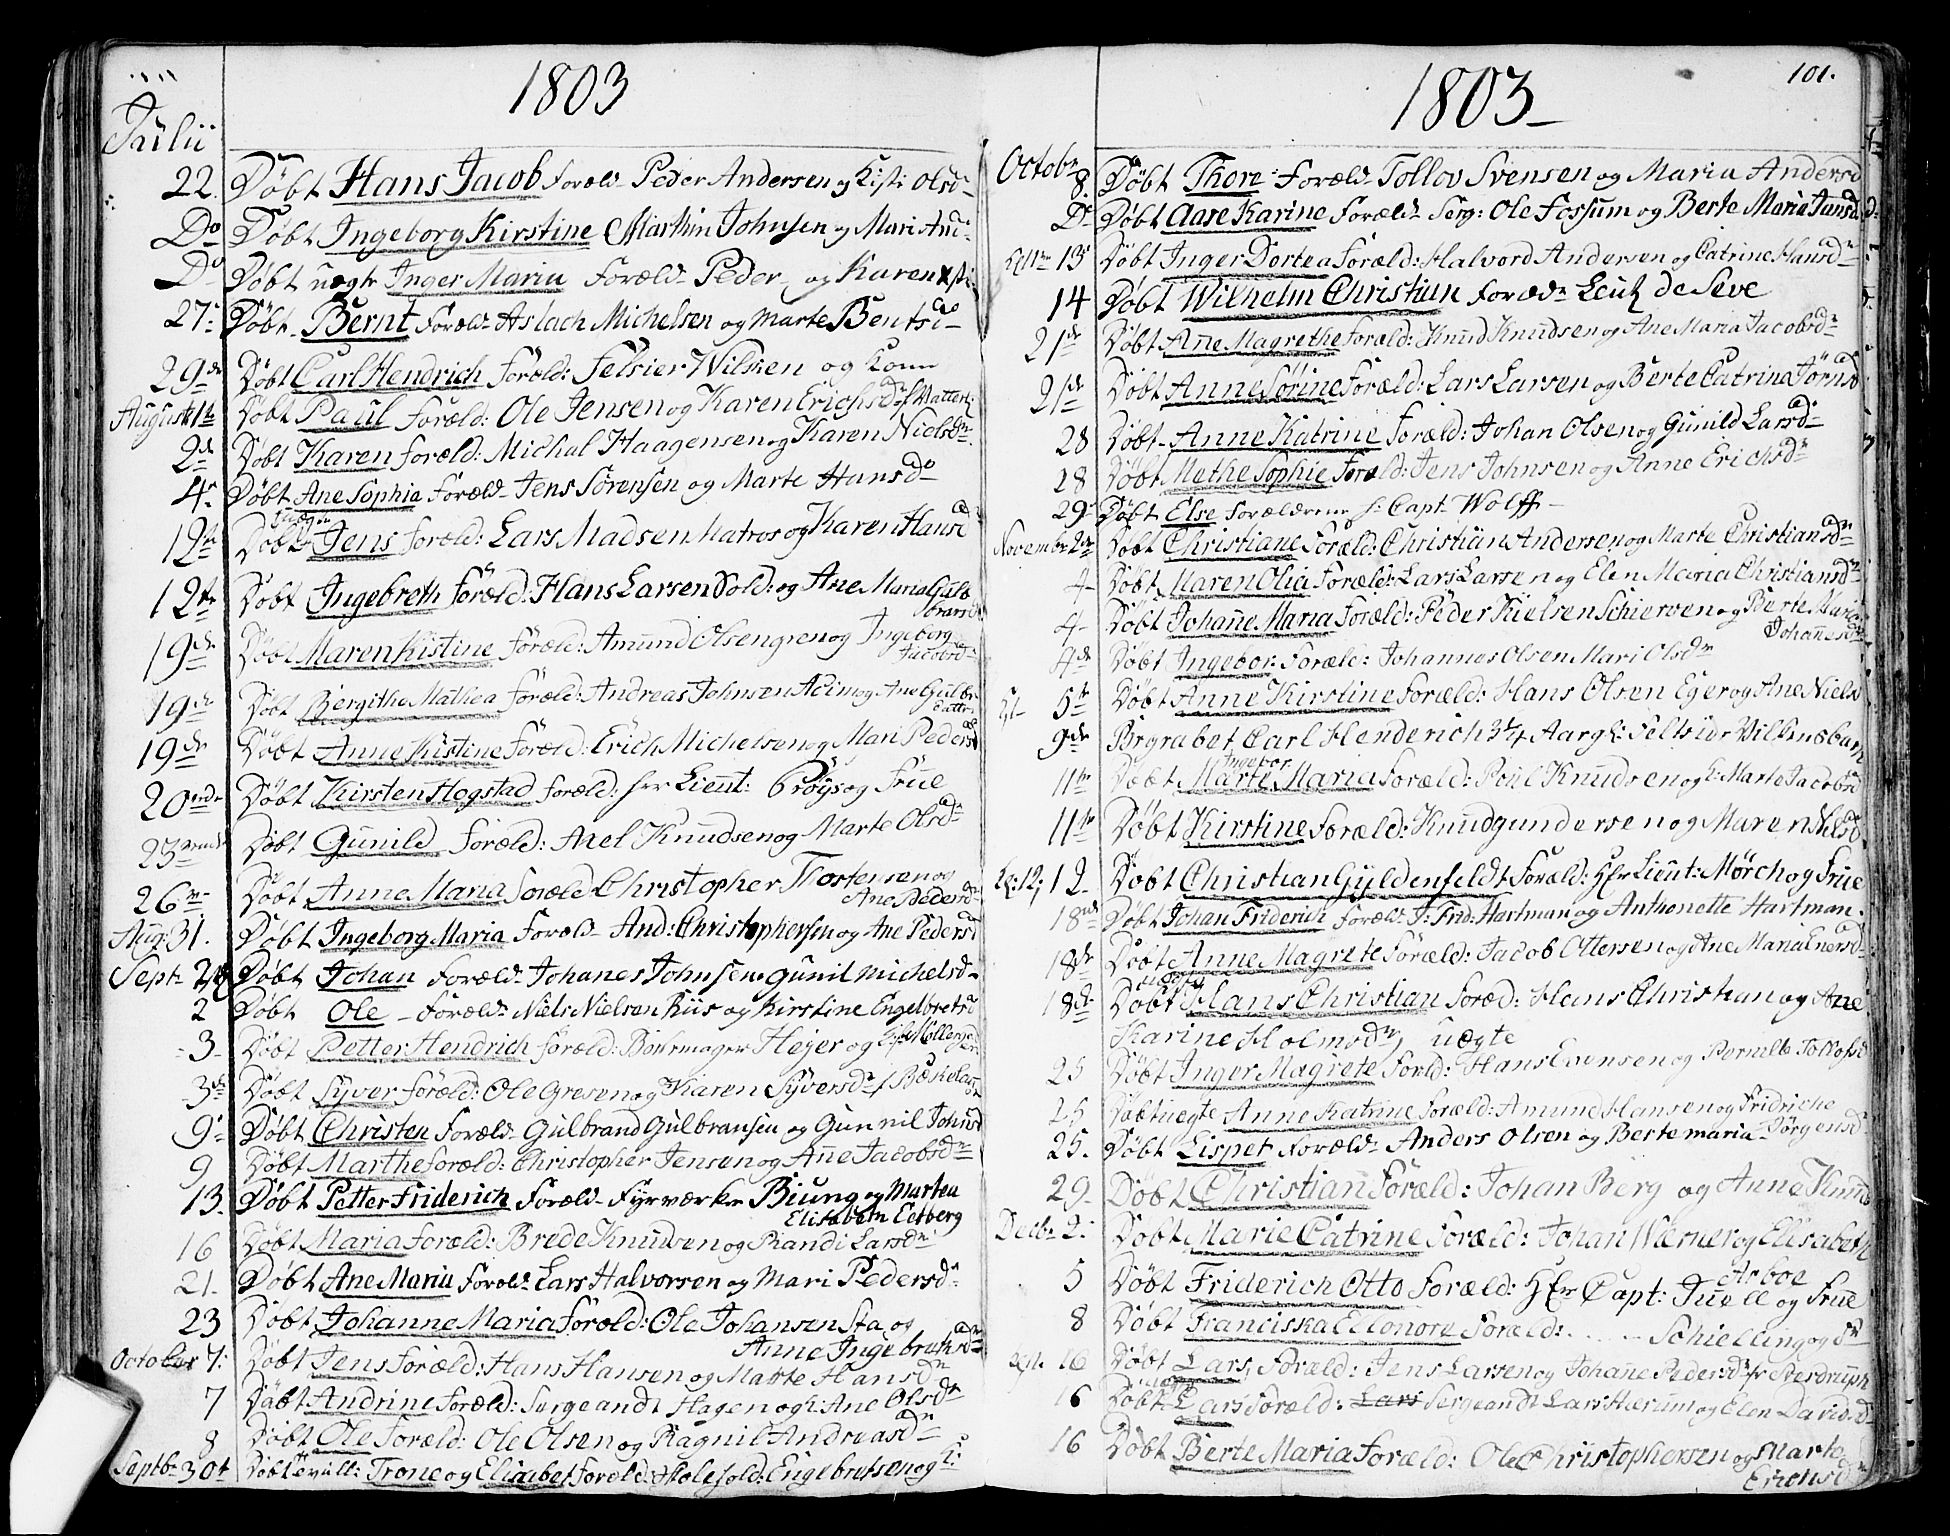 1803
Julii
22. Døbt Hans Jacob Foræld- Peder Andersen og Kisti Olsd-
Do Døbt Ingeborg Kirstine Marthin Johnsen og Mari And-
Do Døbt uægte Inger Maria Foræld- Peder og Karen
27- Døbt Bernt Foræld- Aslach Michelsen og Marte Bentsd-
29de Døbt Carl Hendrich Foræld: Felsier Wilsken og Kone
August 1te Døbt Paul Foræld: Ole Jensen og Karen Erichsd
2de Døbt Karen Foræld: Michal Haagensen og Karen Nielsdr
4- Døbt Ane Sophia Foræld- Jens Sørensen og Marte Hansd
12te Døbt Jens Foræld: Lars Madsen Matros og Karen Hansd
12te Døbt Ingebreth Foræld: Hans Larsen Sold: og Ane Maria Gulbransd
19de Døbt Maren Kistine Foræld: Amund Olsen gren og Ingeborg Jacobsd
19de Døbt Bergithe Mathea Foræld: Andreas Johnsen og Ane
19de Døbt Anne Kistine Foræld: Erich Michelsen og Mari Pedersd
20 Døbt Kirsten Hogstad Foræld: Herr Lieut: Prøys og Frue
23 Døbt Gunild Foræld: Axel Knudsen og Marte Olsd
26 Døbt Anne Maria Foræld: Christopher Thostensen og Ane Pedersd
Aug: 31. Døbt Ingeborg Maria Foræld- And: Christophersen og Ane Pedersd
Sept- 2 Døbt Johan Foræld- Johanes Johnsen Gunil Michelsd-
2 Døbt Ole - Foræld- Niels Nielsen Riis og Kirstine Engelbretsd
3- Døbt Petter Hendrich Foræld: Heyer og
3de Døbt Syver Foræld: Ole Gresen og Karen Syversdr
9- Døbt Christen Foræld- Gulbrand Gulbransen og Gunnil Johnsd
9 Døbt Marthe Foræld: Christopher Jensen og Ane Jacobsdr
13. Døbt Petter Friderich Foræld- Fyrværker Biung og Marten
Elisabeth Eetberg
16 Døbt Maria Foræld: Brede Knudsen og Randi Larsdr
21- Døbt Ane Maria Foræld- Lars Halvorsen og Mari Pedersd-
23 Døbt Johanne Maria Foræld: Ole Johansen Sta og
Anne Ingebretsd
October 7: Døbt Jens Foræld: Hans Hansen og Marte Hansd
7 Døbt Andrine Foræld: Sergeandt Hagen og k: Ane Olsd
8 Døbt Ole Foræld: Ole Olsen og Ragnil Andreasd
Septbr 30t Døbt Tvill: Trone og Elisabet Foræld: Engebretsen og K:
1803
101.
Octobr 8. Døbt Thore Foræld- Tollov Svensen og Maria Andersd
Do Døbt Aase Karine Foræld- Serg: Ole Fossum og Berte Maria Jansd
13 Døbt Inger Dortea Foræld: Halvord Andersen og Catrine Hansd
14 Døbt Wilhelm Christian Foræld- Leut de Seve
21de Døbt Ane Magrethe Foræld: Knud Knudsen og Ane Maria Jacobsd
21de Døbt Anne Sørine Foræld: Lars Larsen og Berte Catrina Jørnsd
28 Døbt Anne Katrine Foræld: Johan Olsen og Gunild Larsd
28 Døbt Methe Sophie Foræld: Jens Johnsen og Anne Erichsd
29 Døbt Else Forældrene H: Capt- Wolff -
November 2 Døbt Christiane Foræld: Christian Andersen og Marte Christiansd
4- Døbt Maren Olia Foræld: Lars Larsen og Elen Maria Christiansd
4- Døbt Johane Maria Foræld: Peder Kielsen Schierven og Berte Maria Johanesd
4de Døbt Ingebor: Foræld: Johannes Olsen Mari Olsdr
5te Døbt Anne Kirstine Foræld: Hans Olsen Eger og Ane Niels
9de Begrabet Carl Henderich 3 1/4 Aar gl: Feltside Vilkens barn
Ingebor
11te Døbt Marte Maria Foræld: Poul Knudsen og k: Marte Jacobsd
11te Døbt Kirstine Foræld: Knud gundersen og Maren Nelsd
12- Døbt Christian Gyldenfeldt Foræld: Hr Lieut: Mørch og Frue
18de Døbt Johan Friderich Foræld: J: Frid: Hartman og Anthonette Hartman
18de Døbt Anne Magrete Foræld: Jacob Ottersen og Ane Maria Enersd
uægte
18de Døbt Hans Christian Foræld: Hans Christian og Ane
Karine Holmsdr uægte
25 Døbt Inger Magrete Foræld: Hans Evensen og Pernille Tollofsd
25 Døbt uegte Anne Katrine Foræld: Amund Hansen og Fridriche Jørgensd
25. Døbt Lispet Foræld- Anders Olsen og Berte maria
29- Døbt Christian Foræld: Johan Berg og Anne Knud
Decbr 2: Døbt Marie Catrine Foræld: Johan Werner og Elisabeth
Arboe
5 Døbt Friderich Otto Foræld: Hr Capt: Juell og Frue
8 Døbt Franciska Elonore Foræld: . . . - Schielling og Fr
16 Døbt Lars Foræld: Jens Larsen og Johane Pedersdr
uægte
16 Døbt Lars Foræld: Lars Sergeandt Lars Hærum og Elen Davidsd
16 Døbt Berte Maria Foræld: Ole Christophersen og Marte
Erichsd